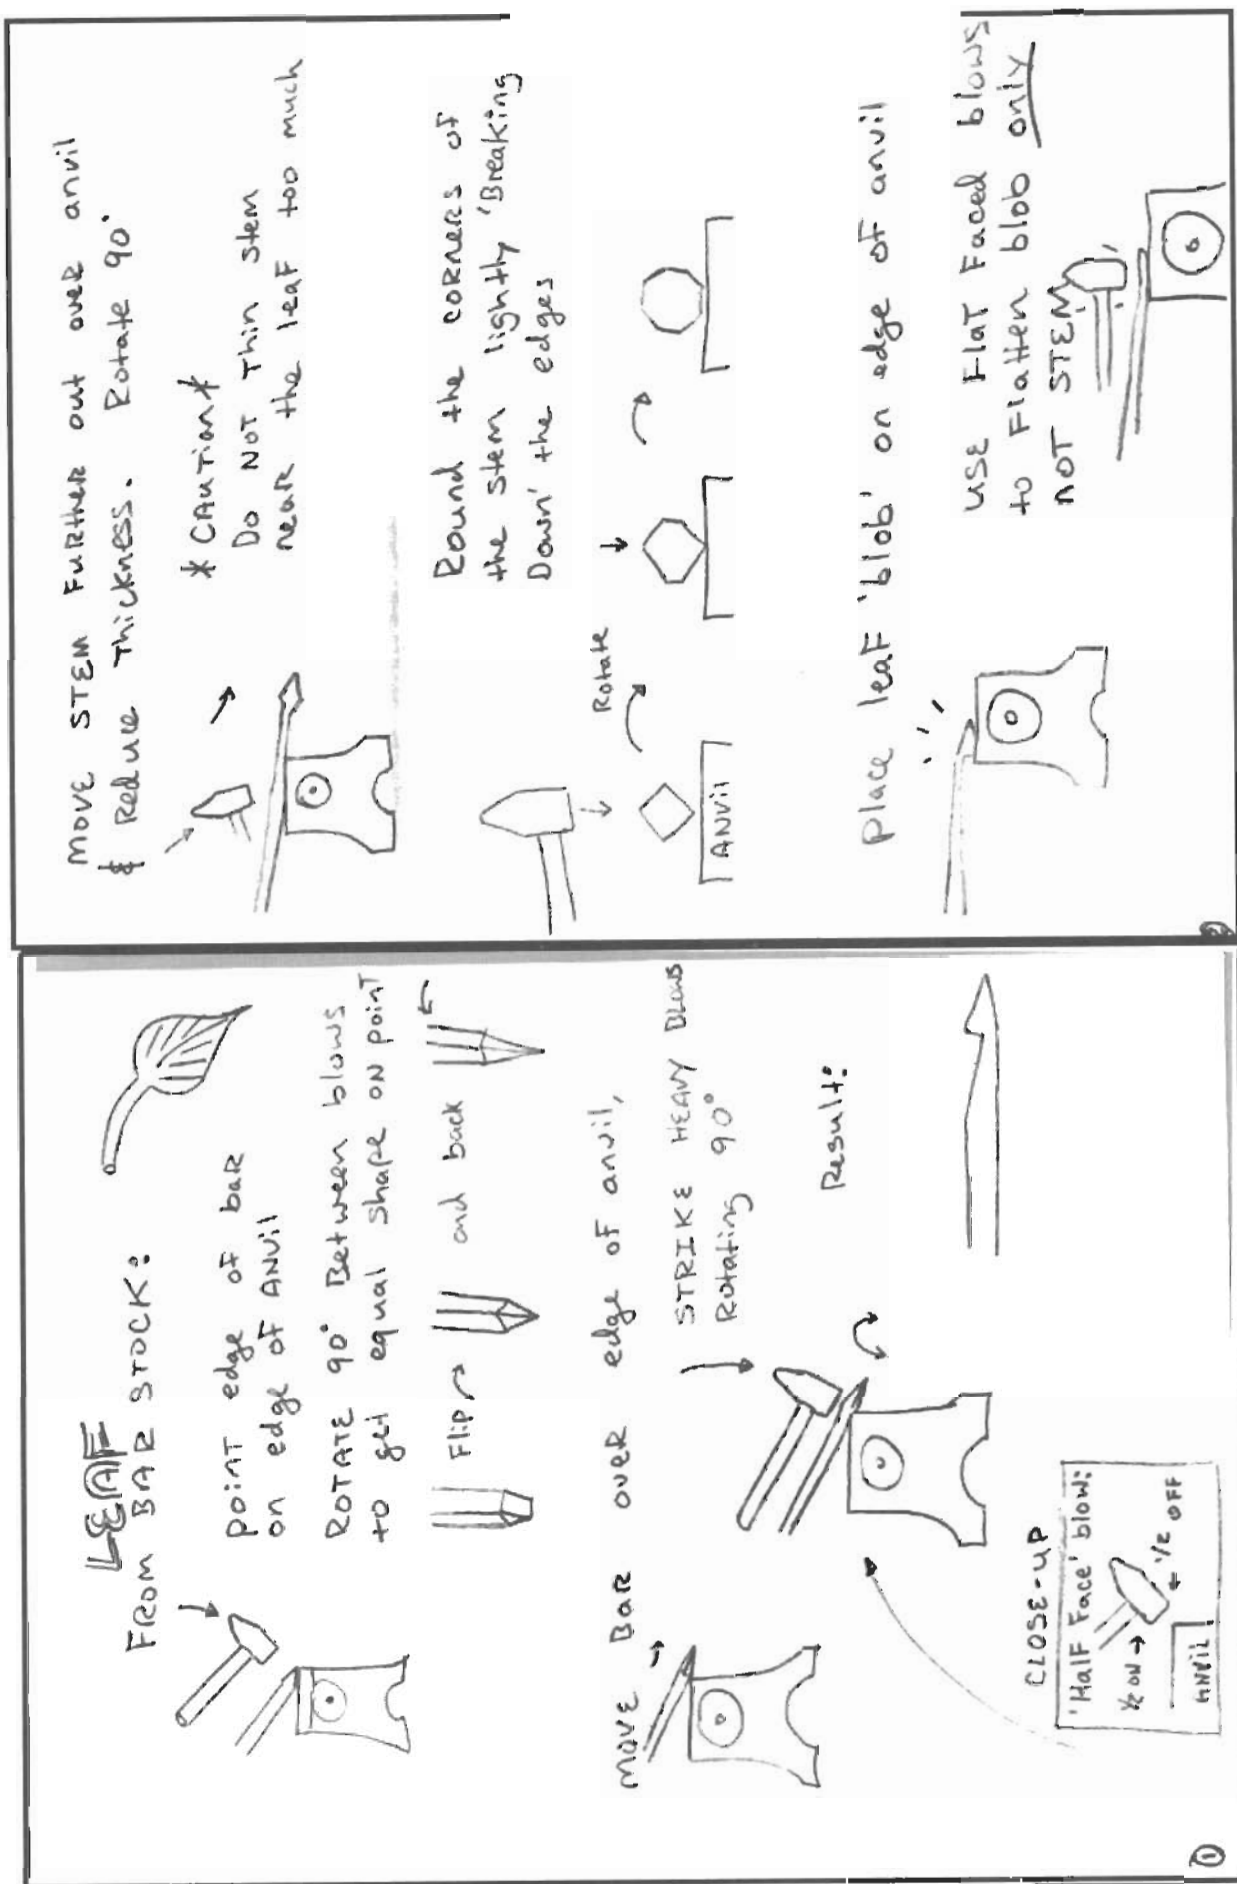 LEAF
FROM BAR STOCK:
POINT edge of baR
on edge of ANVil
ROTATE 90° Between blows
to get equal shape ON point
Flip and back
move BaR over edge of anvil,
STRIKE HEAVY BLOWS
Rotating 90°
Result:
CLOSE-UP
'HalF Face' blow:
1/2 ON →
← 1/2 OFF
ANVIL
1
MOVE STEM FuRtheR out oveR anvil
& Reduce Thickness. Rotate 90°
* CAuTion *
Do NOT Thin Stem
neaR the leaF too much
Round the coRneRs of
the stem lightly 'BReaking
Down' the edges
Rotate
ANVil
place leaF 'blob' on edge oF anvil
USE FlaT Faced blows
to Flatten blob only
NOT STEM
2